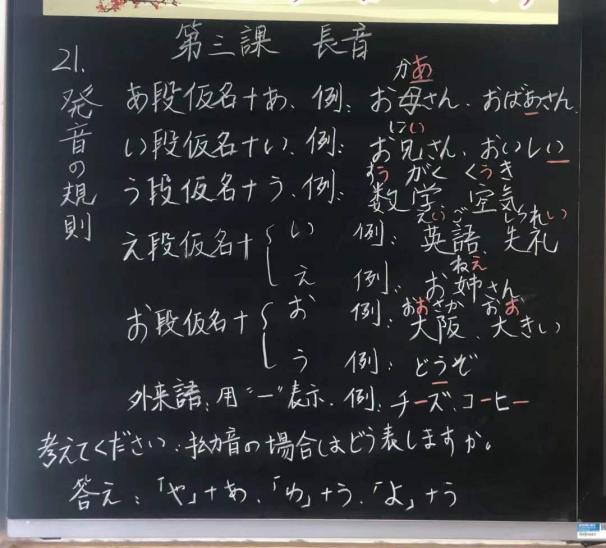 第三課 長音
21.
発音の規則
かあ
あ段仮名+あ、例:お母さん、おばあさん
にい
い段仮名+い、例:お兄さん、おいしい
すう がく くうき
う段仮名+う、例:数学、空気
えいご しつれい
え段仮名+ い 例:英語、失礼
ねえ
え 例:お姉さん
おおさか おお
お段仮名+ お 例:大阪、大きい
う 例:どうぞ
外来語:用"ー"表示、例:チーズ、コーヒー
考えてください:拗音の場合はどう表しますか。
答え:「や」+あ、「ゆ」+う、「よ」+う